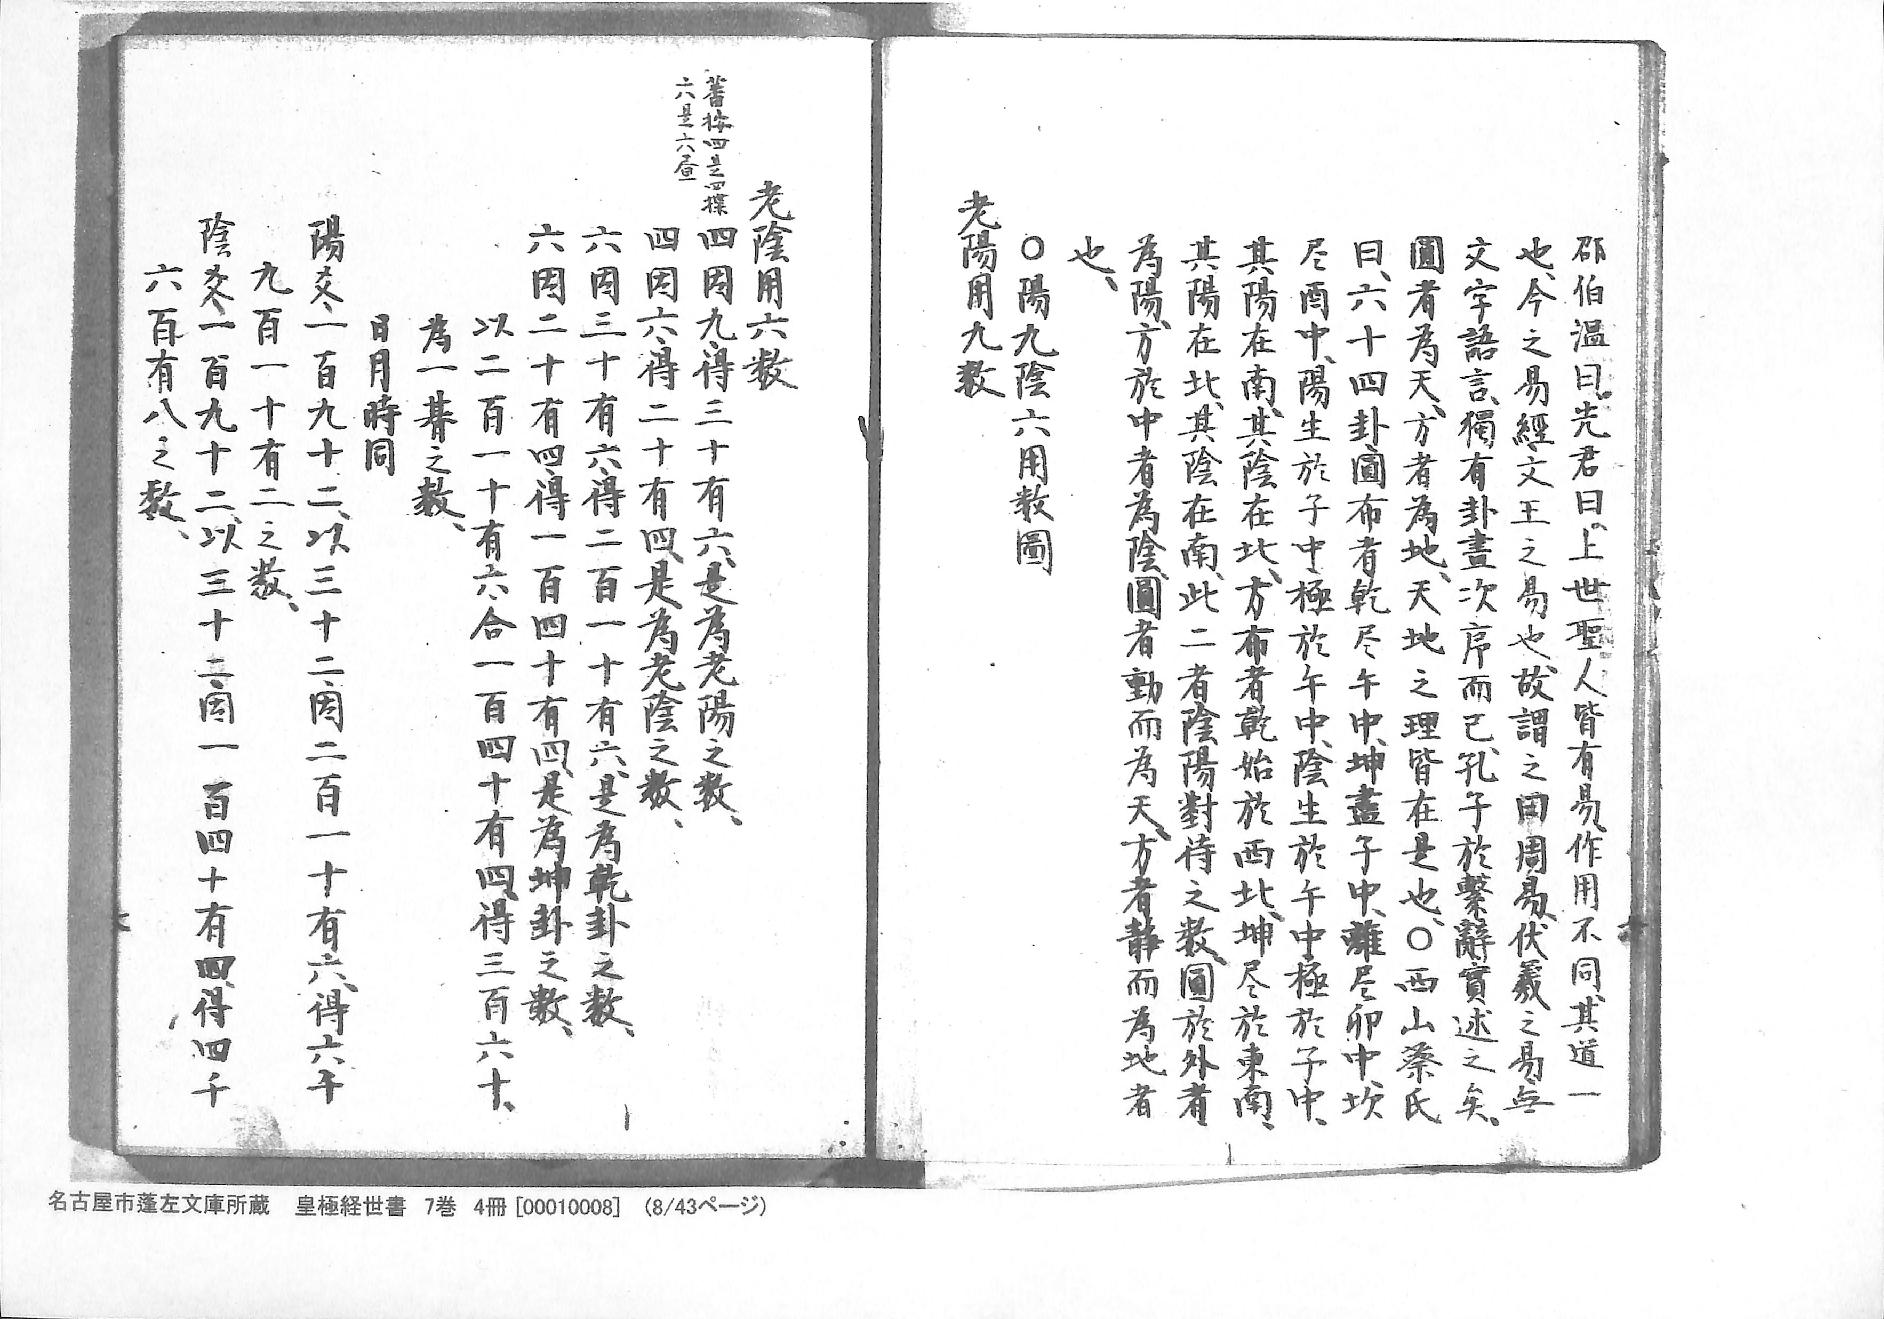 邵伯温曰先君曰上世聖人皆有易作用不同其道一
也、今之易經文王之易也故謂之曰周易、伏羲之易無
文字語言、獨有卦畫次序而已、孔子於繫辭實述之矣、
圓者為天、方者為地、天地之理皆在是也、〇西山蔡氏
曰、六十四卦圓布者乾尽午中、坤盡子中、離尽卯中、坎
尽酉中、陽生於子中極於午中、陰生於午中極於子中、
其陽在南、其陰在北、方布者乾始於西北、坤尽於東南、
其陽在北、其陰在南、此二者陰陽對待之数、圓於外者
為陽、方於中者為陰、圓者動而為天、方者静而為地者
也、
〇陽九陰六用数圖
老陽用九数
老陰用六数
蓍按四是四揲
六是六畫
四因九、得三十有六、是為老陽之数、
四因六、得二十有四、是為老陰之数、
六因三十有六、得二百一十有六、是為乾卦之数、
六因二十有四、得一百四十有四、是為坤卦之数、
以二百一十有六合一百四十有四、得三百六十、
為一朞之数、
日月時同
陽爻一百九十二、以三十二因二百一十有六、得六千
九百一十有二之数、
陰爻一百九十二、以三十二因一百四十有四、得四千
六百有八之数、
名古屋市蓬左文庫所蔵　皇極経世書　7巻　4冊 [00010008]　(8/43ページ)